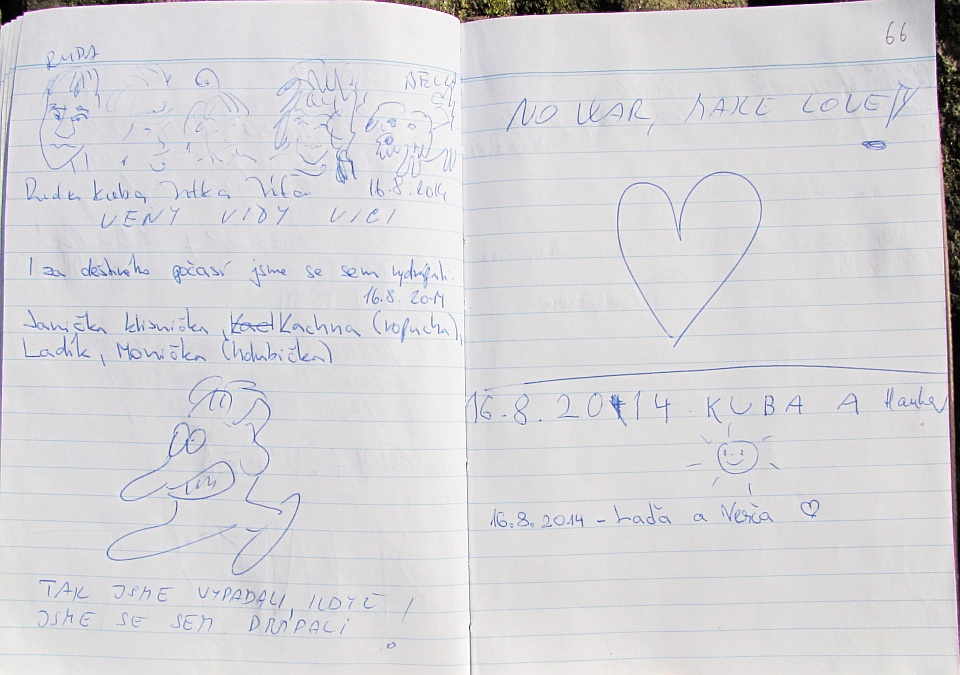 RUDA
Ruda Kuba Jitka Víťa 16.8.2014
VENY VIDY VICI
I za deštivého počasí jsme se sem vydrápali.
16.8. 2014
Janička klisnička, Kachna (ropucha),
Ladík, Monička (holubička)
TAK JSME VYPADALI, KDYŽ
JSME SE SEM DRÁPALI!
66
NO WAR, MAKE LOVE!!
16.8.2014 KUBA A Hanka
16.8.2014 - Laďa a Verča